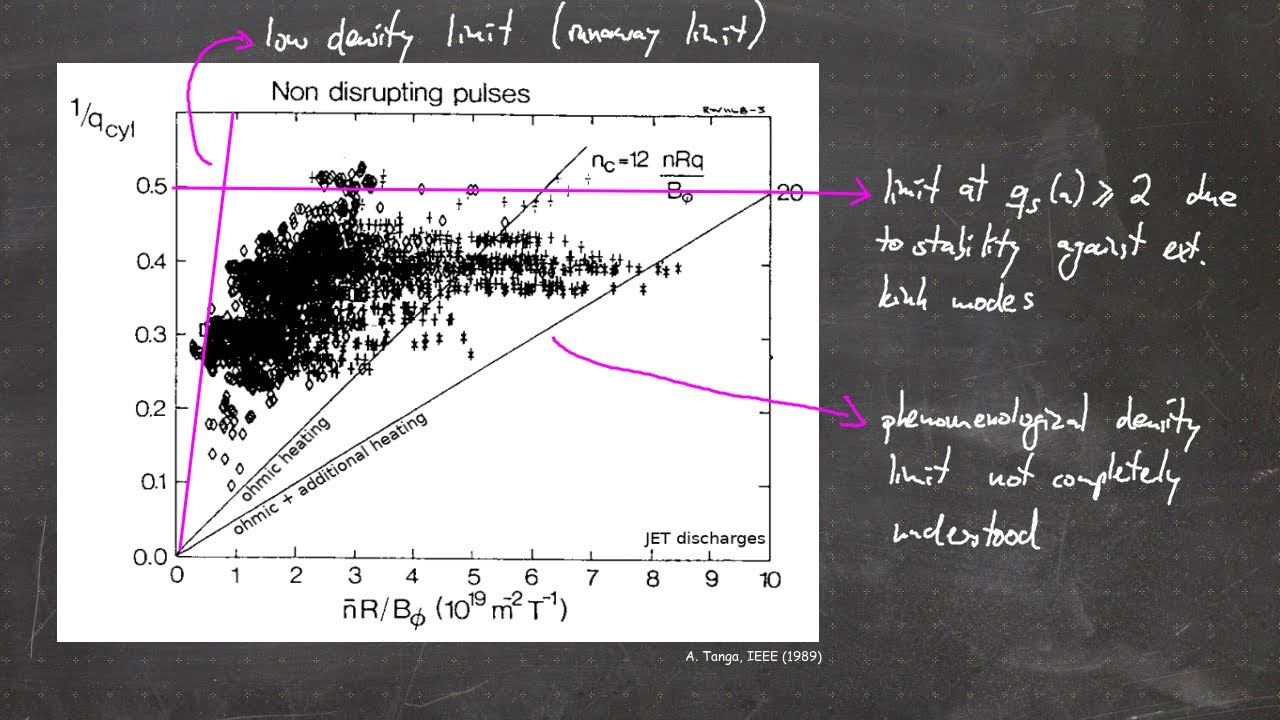 low density limit (runaway limit)
Non disrupting pulses
1/qcyl
nc=12 nRq
Bϕ
20
limit at qs(a) ⩾ 2 due
to stability against ext.
kink modes
0.5
0.4
0.3
0.2
0.1
0.0
ohmic heating
ohmic + additional heating
phenomenological density
limit not completely
understood
JET discharges
0 1 2 3 4 5 6 7 8 9 10
n̄R/Bϕ (10¹⁹ m⁻² T⁻¹)
A. Tanga, IEEE (1989)